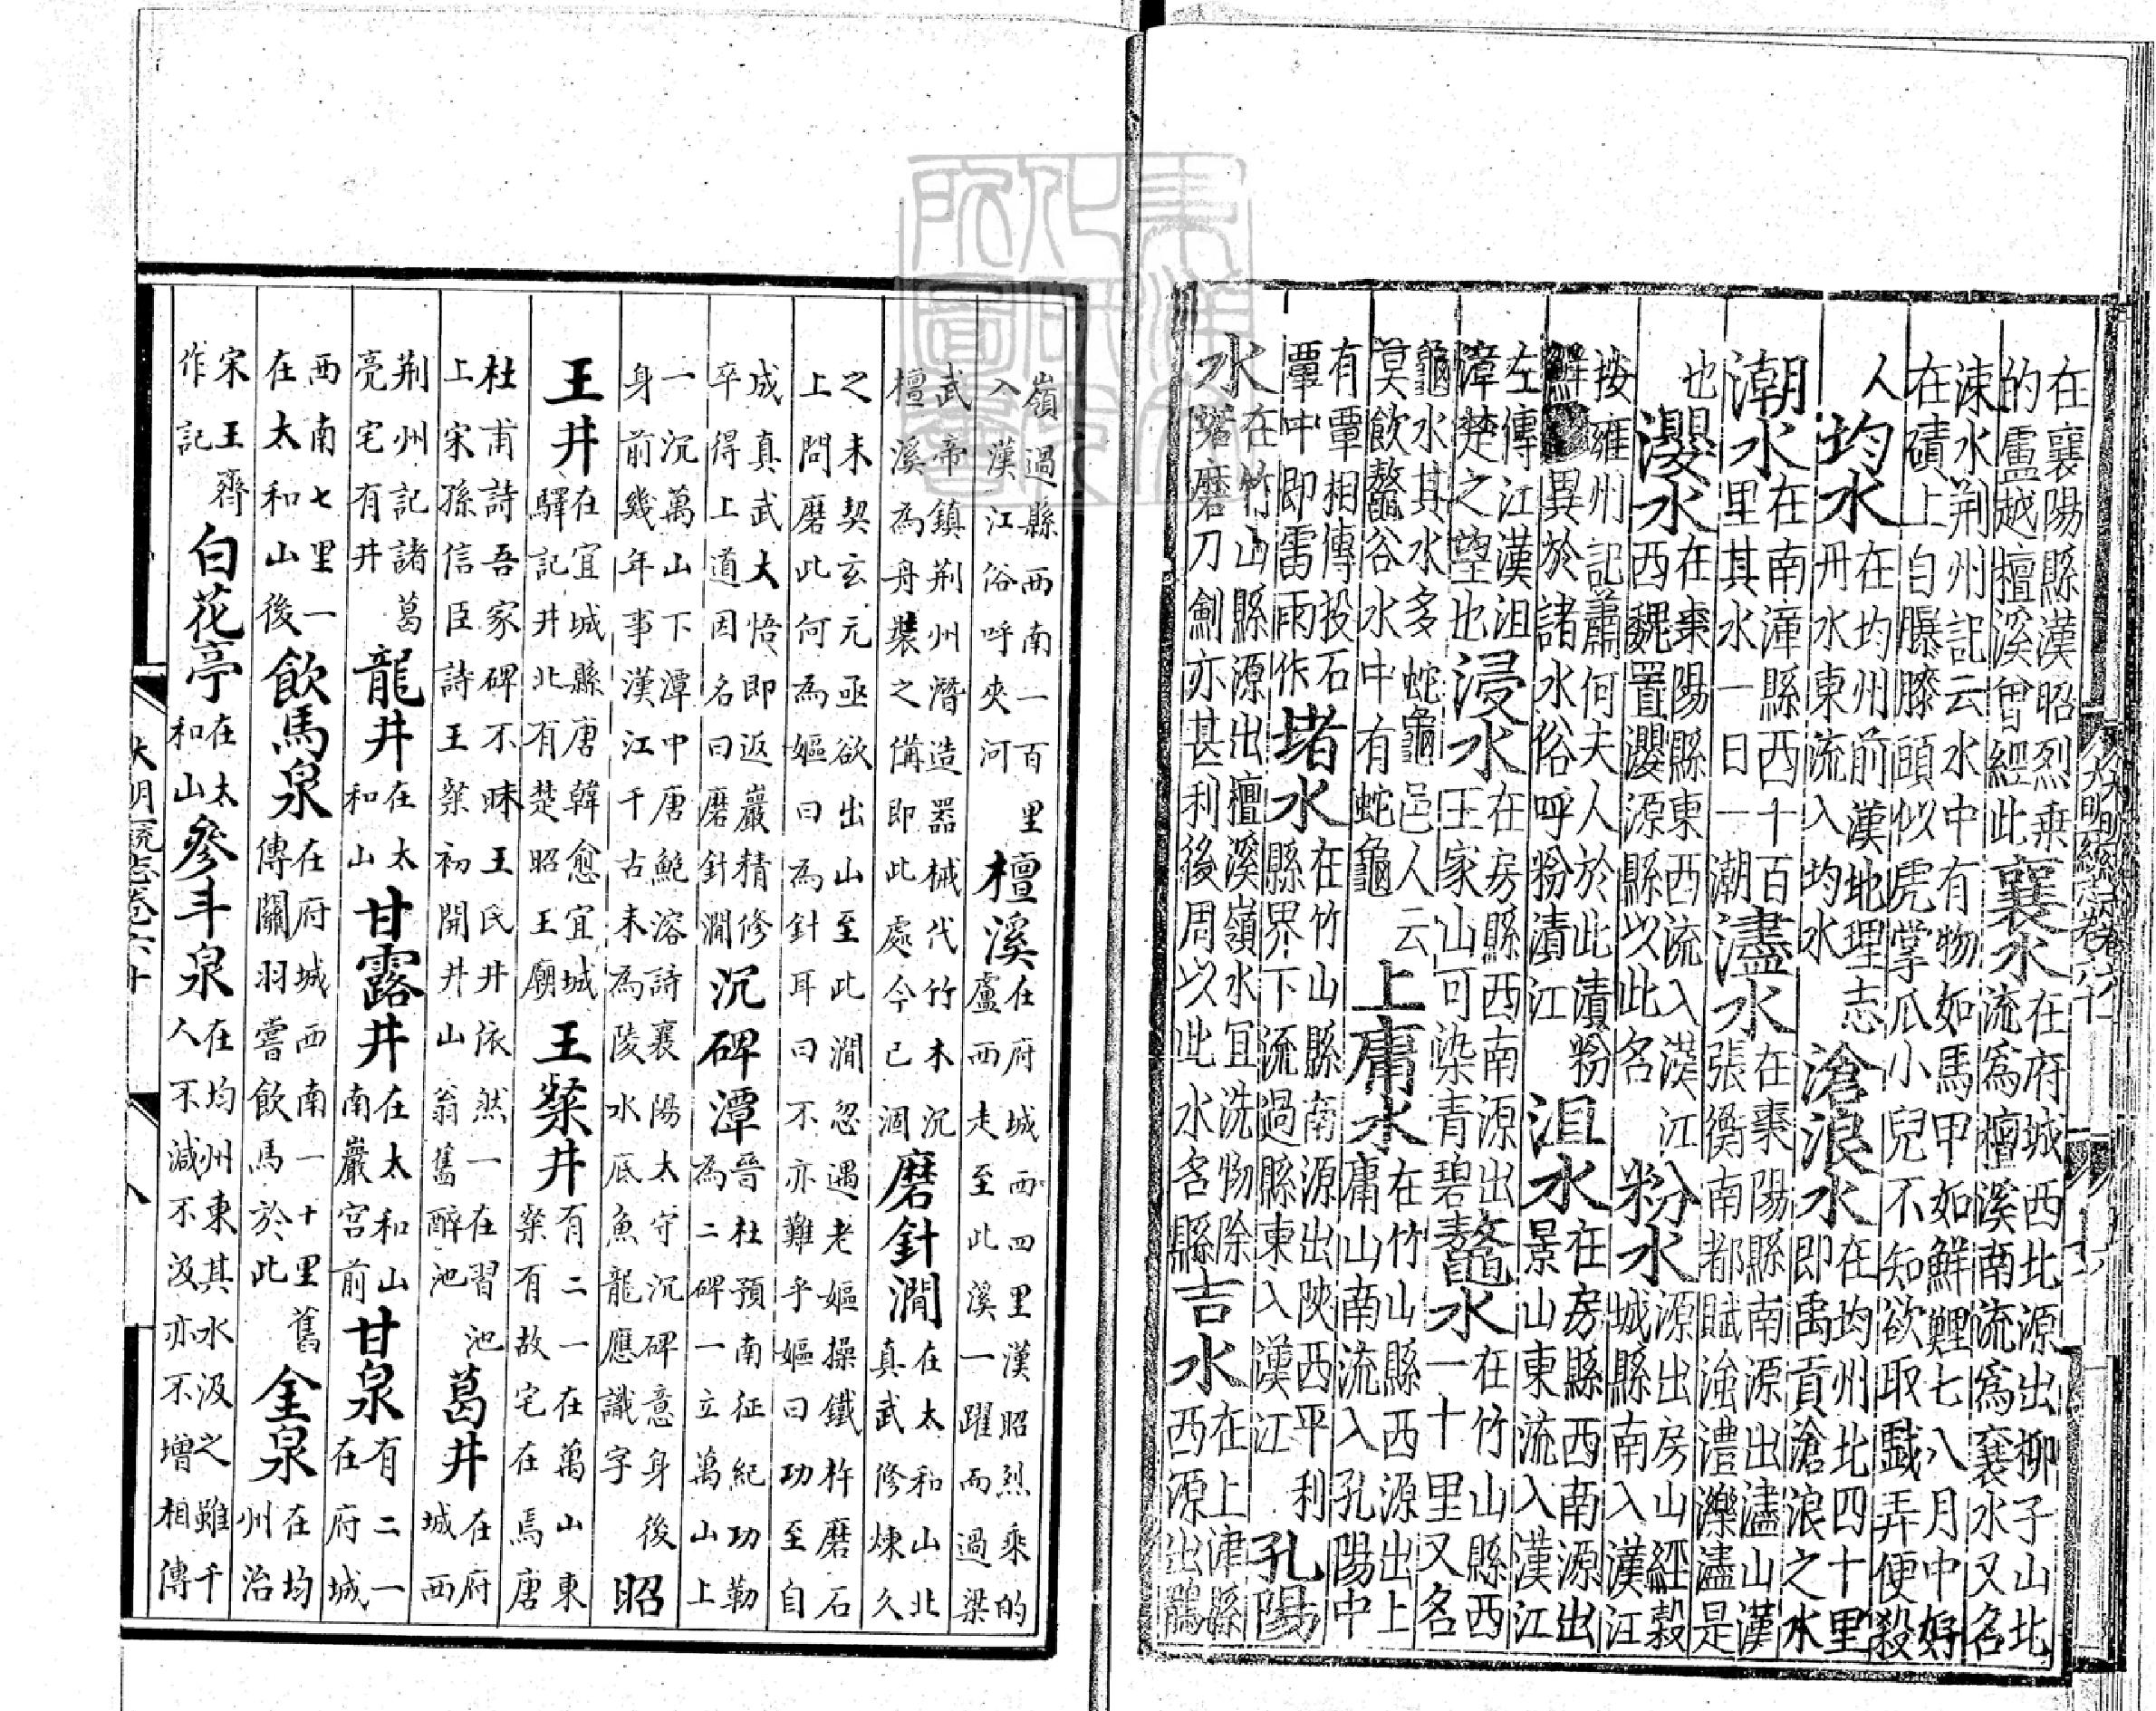 在襄陽縣漢昭烈乘的盧越檀溪曾經此襄水在府城西北源出柳子山北流爲檀溪南流爲襄水又名
涑水荆州記云水中有物如馬甲如鮮鯉七八月中好在磧上自曝膝頭似虎掌爪小兒不知欲取戲弄便殺
人均水在均州前漢地理志丹水東流入均水滄浪水在均州北四十里即禹貢滄浪之水
潮水在南漳縣西十百里其水一日一潮濜水在棗陽縣南源出濜山漢張衡南都賦強澧灤濜是
也瀴水在棗陽縣東西流入漢江西魏置瀴源縣以此名粉水源出房山經穀城縣南入漢江
按雍州記蕭何夫人於此漬粉鮮異於諸水俗呼粉漬江沮水在房縣西南源出景山東流入漢江
左傳江漢沮漳楚之望也浸水在房縣西南源出王家山可染青碧鼇水在竹山縣西一十里又名
龜水其水多蛇龜邑人云莫飲鼇谷水中有蛇龜上庸水在竹山縣西源出上庸山南流入孔陽中
有覃相傳投石覃中即雷雨作堵水在竹山縣南源出陝西平利縣界下流過縣東入漢江孔陽
水在竹山縣源出檀溪嶺水宜洗物除垢磨刀劍亦甚利後周以此水名縣吉水在上津縣西源出鶻
嶺過縣西南一百里入漢江俗呼夾河檀溪在府城西四里漢昭烈乘的盧西走至此溪一躍而過梁
武帝鎮荆州潛造器械伐竹木沉檀溪為舟裝之備即此處今已涸磨針澗在太和山北真武修煉久
之未契玄元亟欲出山至此澗忽遇老嫗操鐵杵磨石上問磨此何為嫗曰為針耳曰不亦難乎嫗曰功至自
成真武大悟即返巖精修卒得上道因名曰磨針澗沉碑潭晉杜預南征紀功勒為二碑一立萬山上
一沉萬山下潭中唐鮑溶詩襄陽太守沉碑意身後身前幾年事漢江千古未為陵水底魚龍應識字昭
王井在宜城縣唐韓愈宜城驛記井北有楚昭王廟王粲井有二一在萬山東粲有故宅在焉唐
杜甫詩吾家碑不昧王氏井依然一在習池上宋孫信臣詩王粲初開井山翁舊醉池葛井在府城西
荆州記諸葛亮宅有井龍井在太和山甘露井在太和山南巖宮前甘泉有二一在府城
西南七里一在太和山後飲馬泉在府城西南一十里舊傳關羽嘗飲馬於此金泉在均州治
宋王齊作記白花亭在太和山參斗泉在均州東其水汲之雖千人不減不汲亦不增相傳
大明一統志卷六十
八